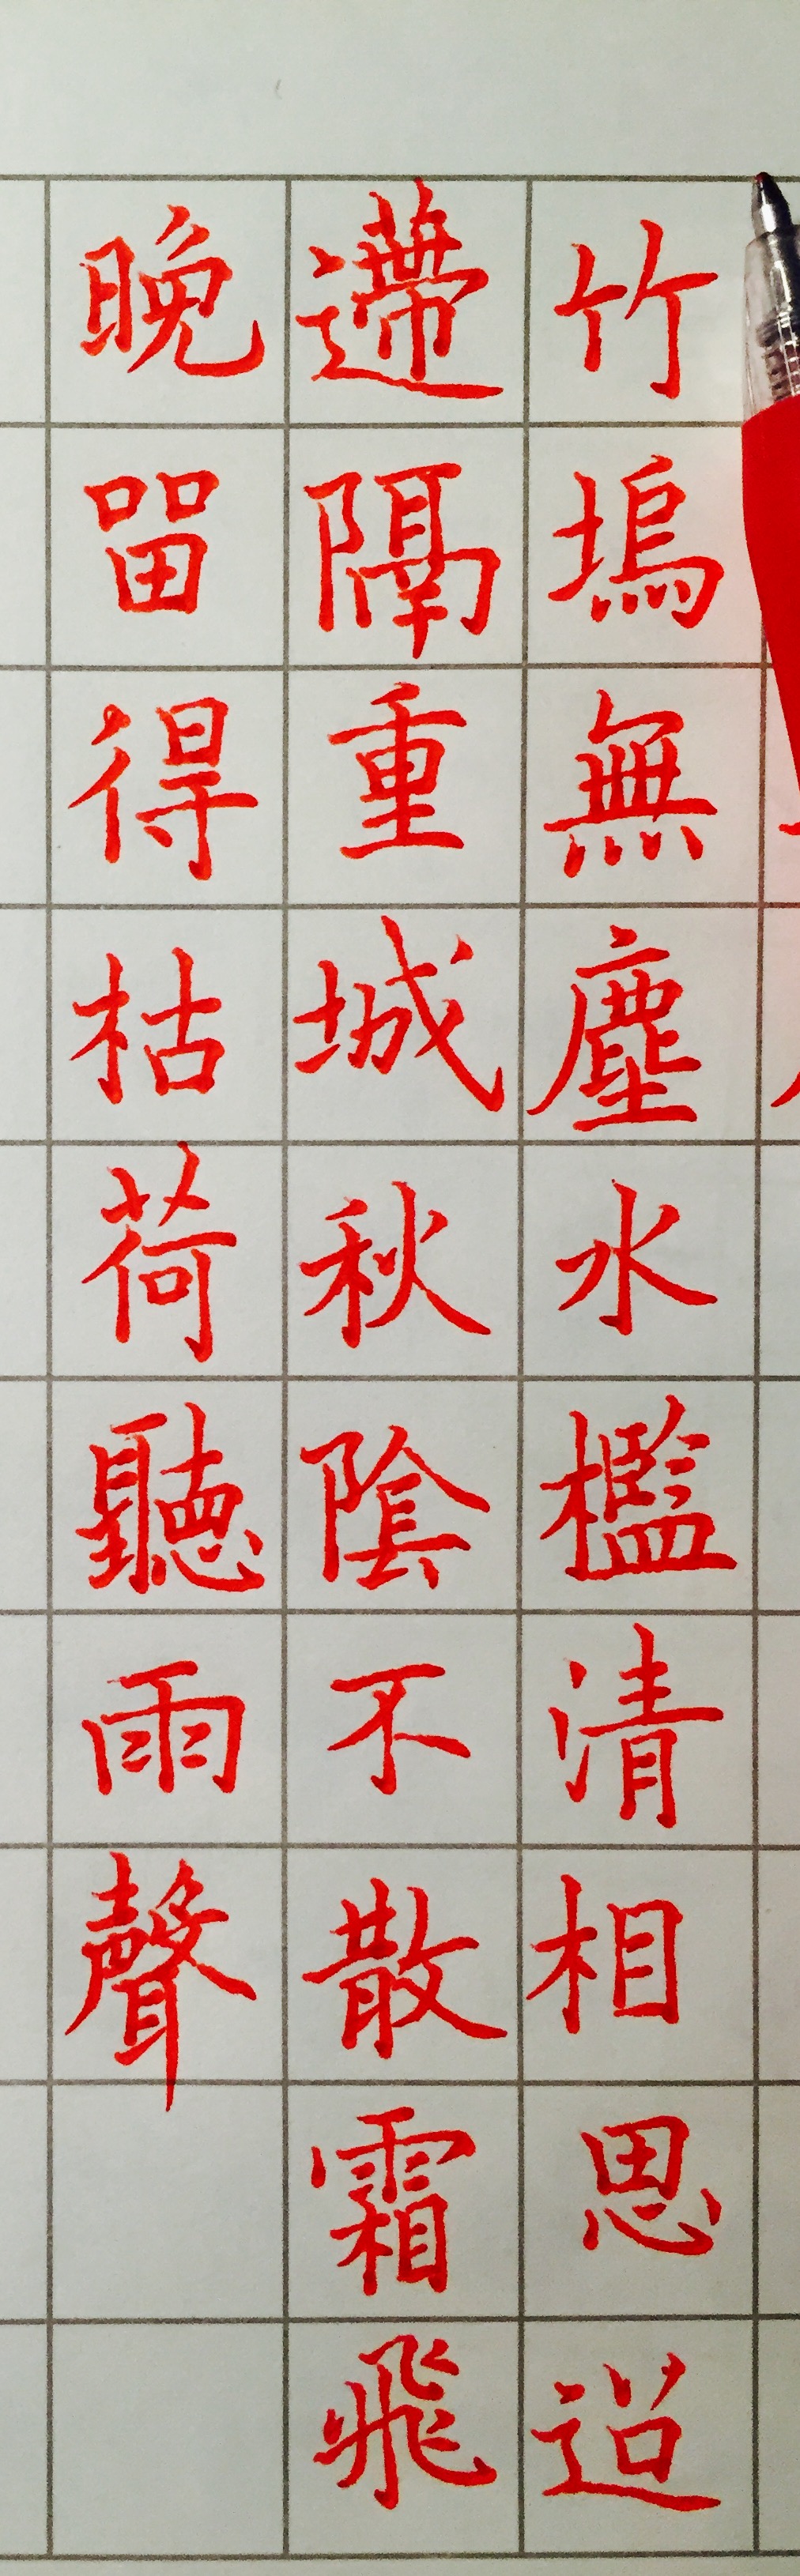 竹塢無塵水檻清相思迢
遰隔重城秋陰不散霜飛
晚留得枯荷聽雨聲